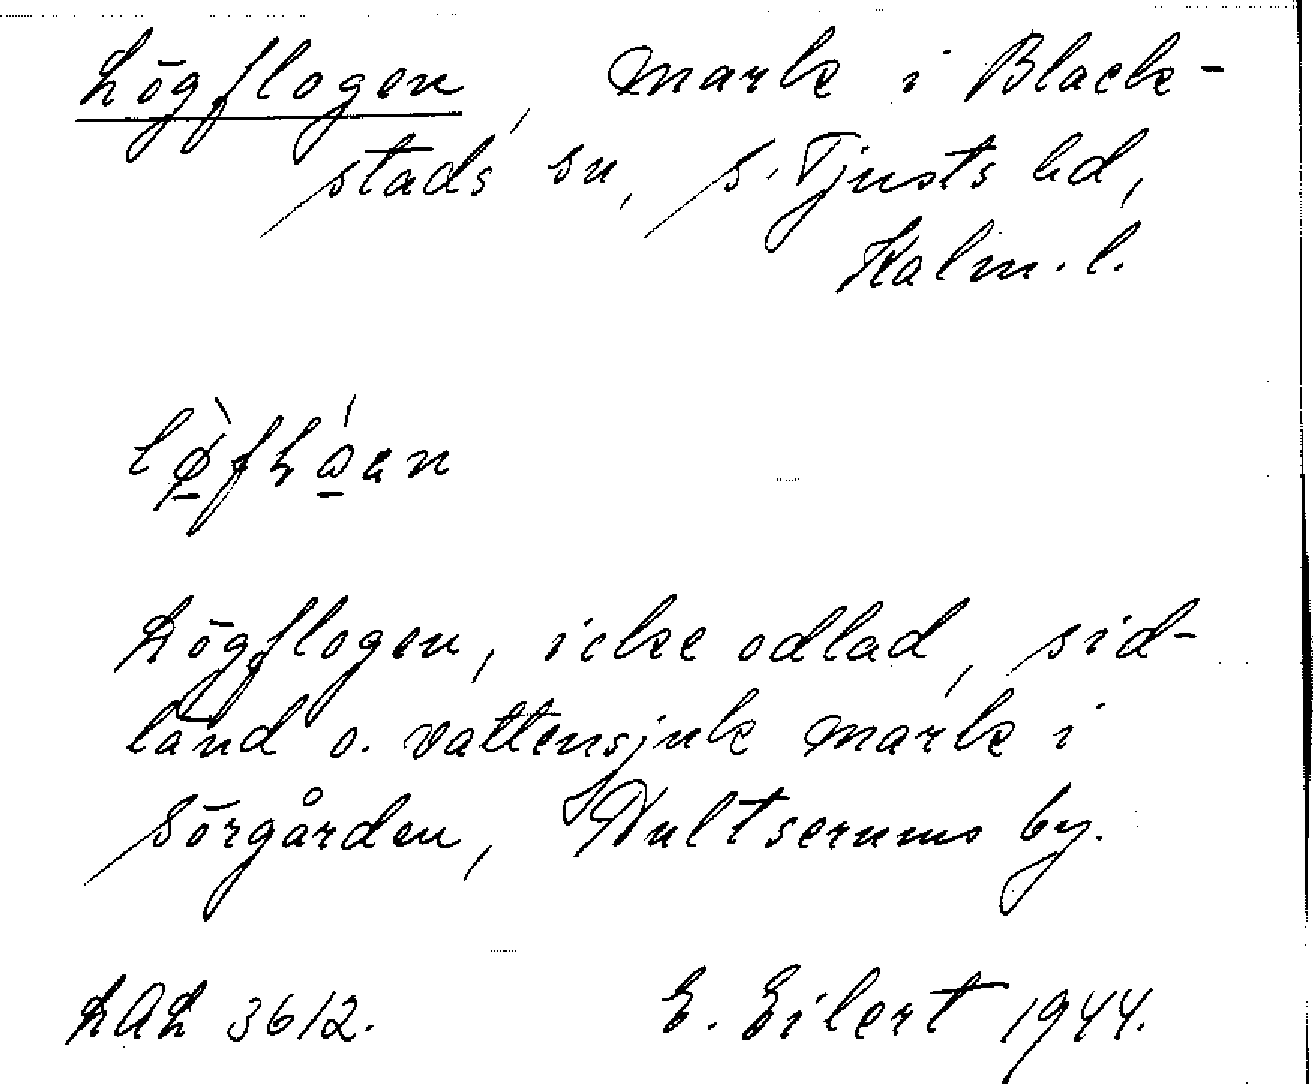 Lögflogen, mark i Black-
stads sn, S. Tjusts hd,
Kalm. l.
Lögflogen, icke odlad, sid-
länd o. vattensjuk mark i
Sörgården, Hultserums by.
LAL 3612. E. Eilert 1944.